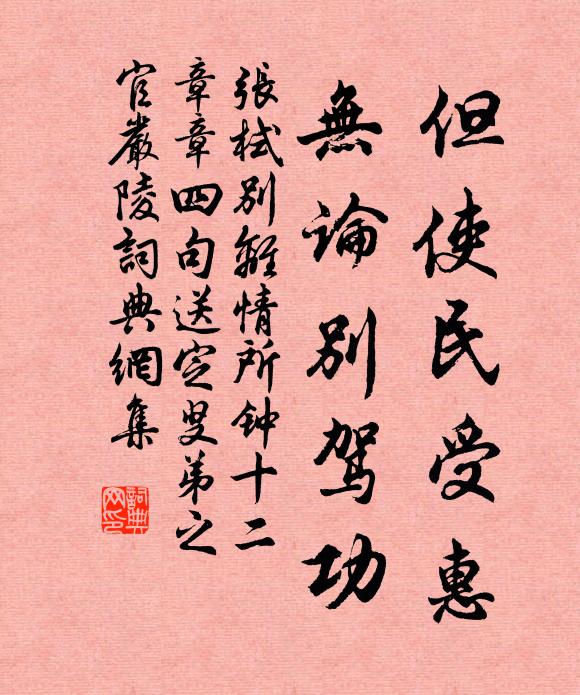 但使民受惠
無論別駕功
張栻別離情所鍾十二
章章四句送定叟弟之
官嚴陵詞典網集
詞典
网印